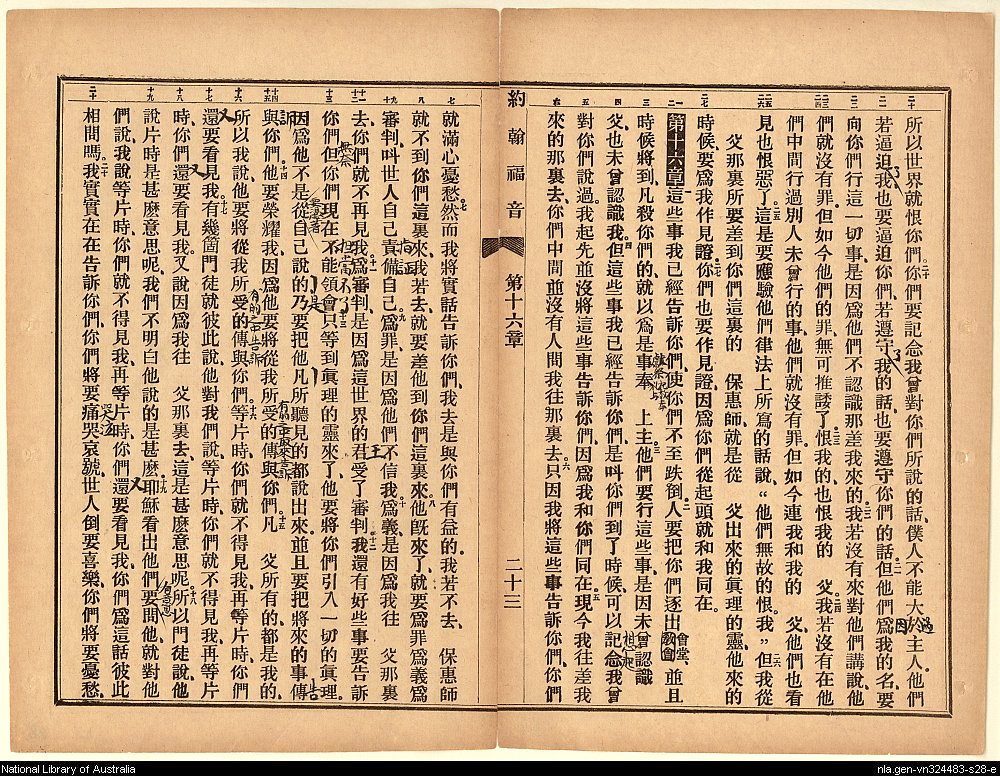 所以世界就恨你們。二十你們要記念我曾對你們所說的話、僕人不能大於主人、他們
若逼迫我、也要逼迫你們、若遵守我的話、也要遵守你們的話。二一但他們爲我的名、要
向你們行這一切事、是因爲他們不認識那差我來的。二二我若沒有來對他們講說、他
們就沒有罪、但如今他們的罪無可推諉了。二三恨我的、也恨我的 父。二四我若沒有在他
們中間行過別人未曾行的事、他們就沒有罪。但如今連我和我的 父、他們也看
見也恨惡了。二五這是要應驗他們律法上所寫的話說、“他們無故的恨我。”二六但我從
父那裏所要差到你們這裏的 保惠師、就是從 父出來的眞理的靈、他來的
時候、要爲我作見證。二七你們也要作見證、因爲你們從起頭就和我同在。
第十六章 一這些事我已經告訴你們、使你們不至跌倒。二人要把你們逐出會堂、教會並且
時候將到、凡殺你們的、就以爲是事奉 上主。三他們要行這些事、是因未曾認識
父、也未曾認識我。四但這些事我已經告訴你們、是叫你們到了時候、可以記念我曾
對你們說過。我起先並沒將這些事告訴你們、因爲我和你們同在。五現今我往差我
來的那裏去、你們中間並沒有人問我往那裏去。六只因我將這些事告訴你們、你們
約翰福音 第十六章 二十三
就滿心憂愁。七然而我將實話告訴你們、我去是與你們有益的。我若不去、 保惠師
就不到你們這裏來、我若去、就要差他到你們這裏來。八他旣來了、就要爲罪爲義爲
審判、叫世人自己責備自己。九爲罪、是因爲他們不信我。十爲義、是因爲我往 父那裏
去、你們就不再見我。十一爲審判、是因爲這世界的君受了審判。十二我還有好些事要告訴
你們、但你們現在不能領會。十三只等到眞理的靈來了、他要將你們引入一切的眞理。
因爲他不是從自己說的、乃要把他凡所聽見的都說出來。並且要把將來的事傳
與你們。十四他要榮耀我、因爲他要將從我所受的傳與你們。十五凡 父所有的、都是我的。
所以我說他要將從我所受的傳與你們。十六等片時、你們就不得見我、再等片時、你們
還要看見我。十七有幾箇門徒就彼此說、他對我們說、等片時你們就不得見我、再等片
時、你們還要看見我。又說因爲我往 父那裏去、這是甚麽意思呢。十八所以門徒說、他
說片時是甚麽意思呢、我們不明白他說的是甚麽。十九耶穌看出他們要問他、就對他
們說、我說等片時、你們就不得見我、再等片時、你們還要看見我、你們爲這話彼此
相問嗎。二十我實實在在告訴你們、你們將要痛哭哀號、世人倒要喜樂、你們將要憂愁、
National Library of Australia
nla.gen-vn324483-s28-e